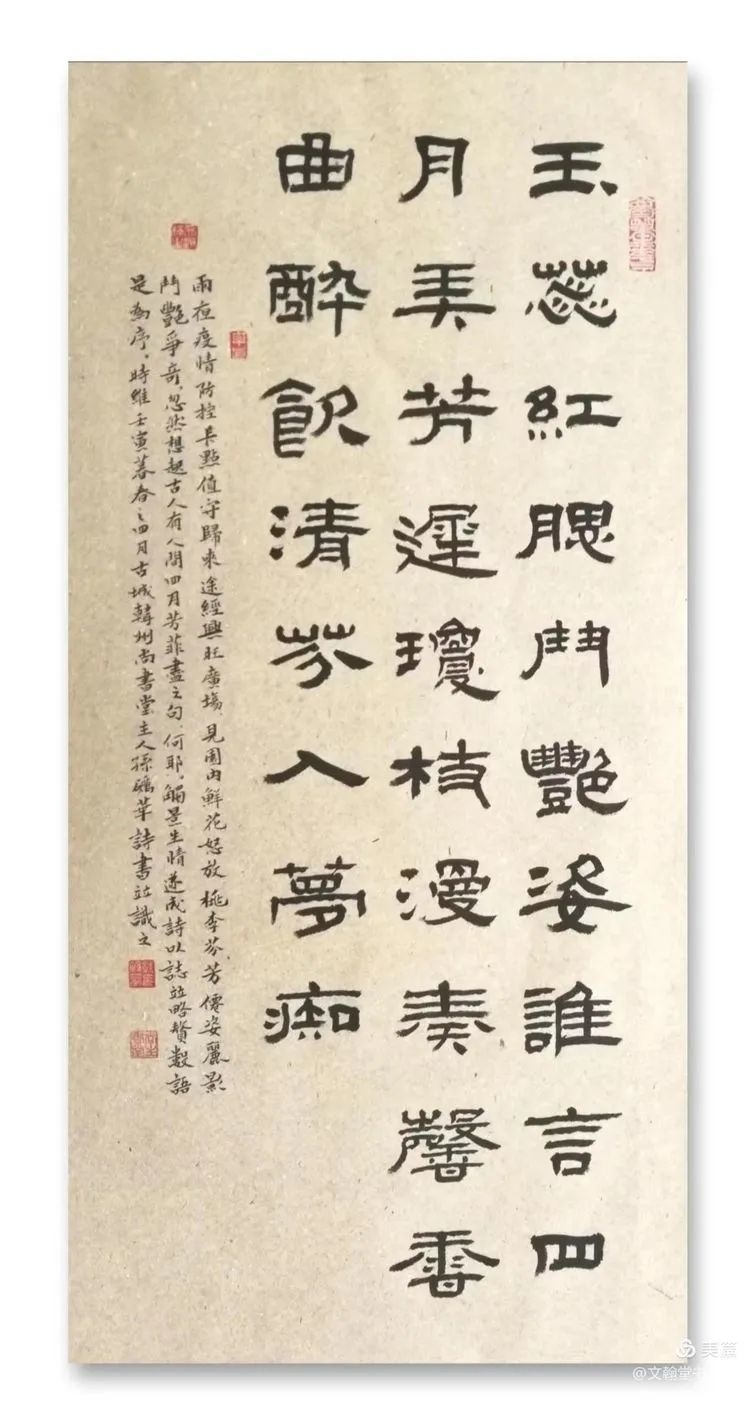 玉蕊紅腮鬥艷姿誰言四
月美芳遲瓊枝漫奏馨香
曲醉飲清芬入夢痴
雨夜疫情防控卡點值守歸來途經興旺廣場見園内鮮花怒放桃李芬芳僊姿麗影
鬥艷爭奇忽然想起古人有人間四月芳菲盡之句何耶觸景生情遂成詩以誌並略贅數語
是為序時維壬寅暮春之四月古城韓州尚書堂主人孫華詩書並識之
美篇
@文翰堂